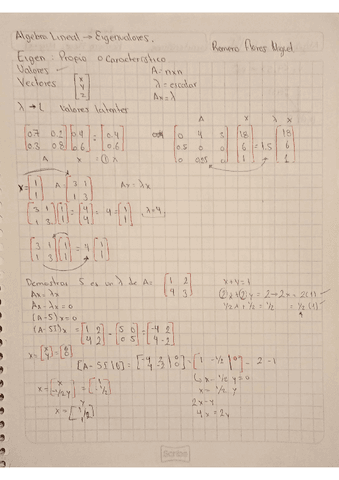 Algebra Lineal → Eigenvalores.
Romero Flores Miguel
Eigen: Propio o Caracteristico
Valores A = nxn
Vectores [x y z] λ = escalar
Ax = λ
λ → valores latentes
A x λ x
[0.7 0.2 0.3 0.8] [0.4 0.6] = [0.4 0.6] [0 4 3 0.5 0 0 0 0.25 0] [18 6 1] = 1.5 [18 6 1]
A x = ① x
x = [1 1] A = [3 1 1 3] Ax = λx
[3 1 1 3] [1 1] = [4 4] = 4 [1 1] λ=4
[3 1 1 3] [1 1] = 4 [1 1]
Demostrar 5 es un λ de A = [1 2 4 3]
Ax = λx
Ax - λx = 0
[A-5]x = 0
(A-5I)x = [1 2 4 3] - [5 0 0 5] = [-4 2 4 -2]
x = [x y] = [0 0]
[A-5I|0] = [-4 2 | 0 4 -2 | 0] = [1 -1/2 | 0]
x - 1/2 y = 0
x = 1/2 y
2x = y
4x = 2y